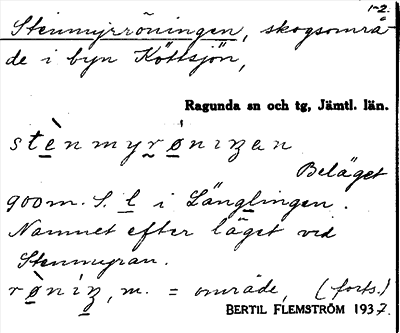 1-2.
Stenmyrröningen, skogsområ-
de i byn Köttsjön,
Ragunda sn och tg, Jämtl. län.
stènmyrò̱niŋan
Beläget
900 m. S. l i Länglingen.
Namnet efter läget vid
Stenmyran.
rò̱níŋ, m. = område, (forts.)
BERTIL FLEMSTRÖM 1937.